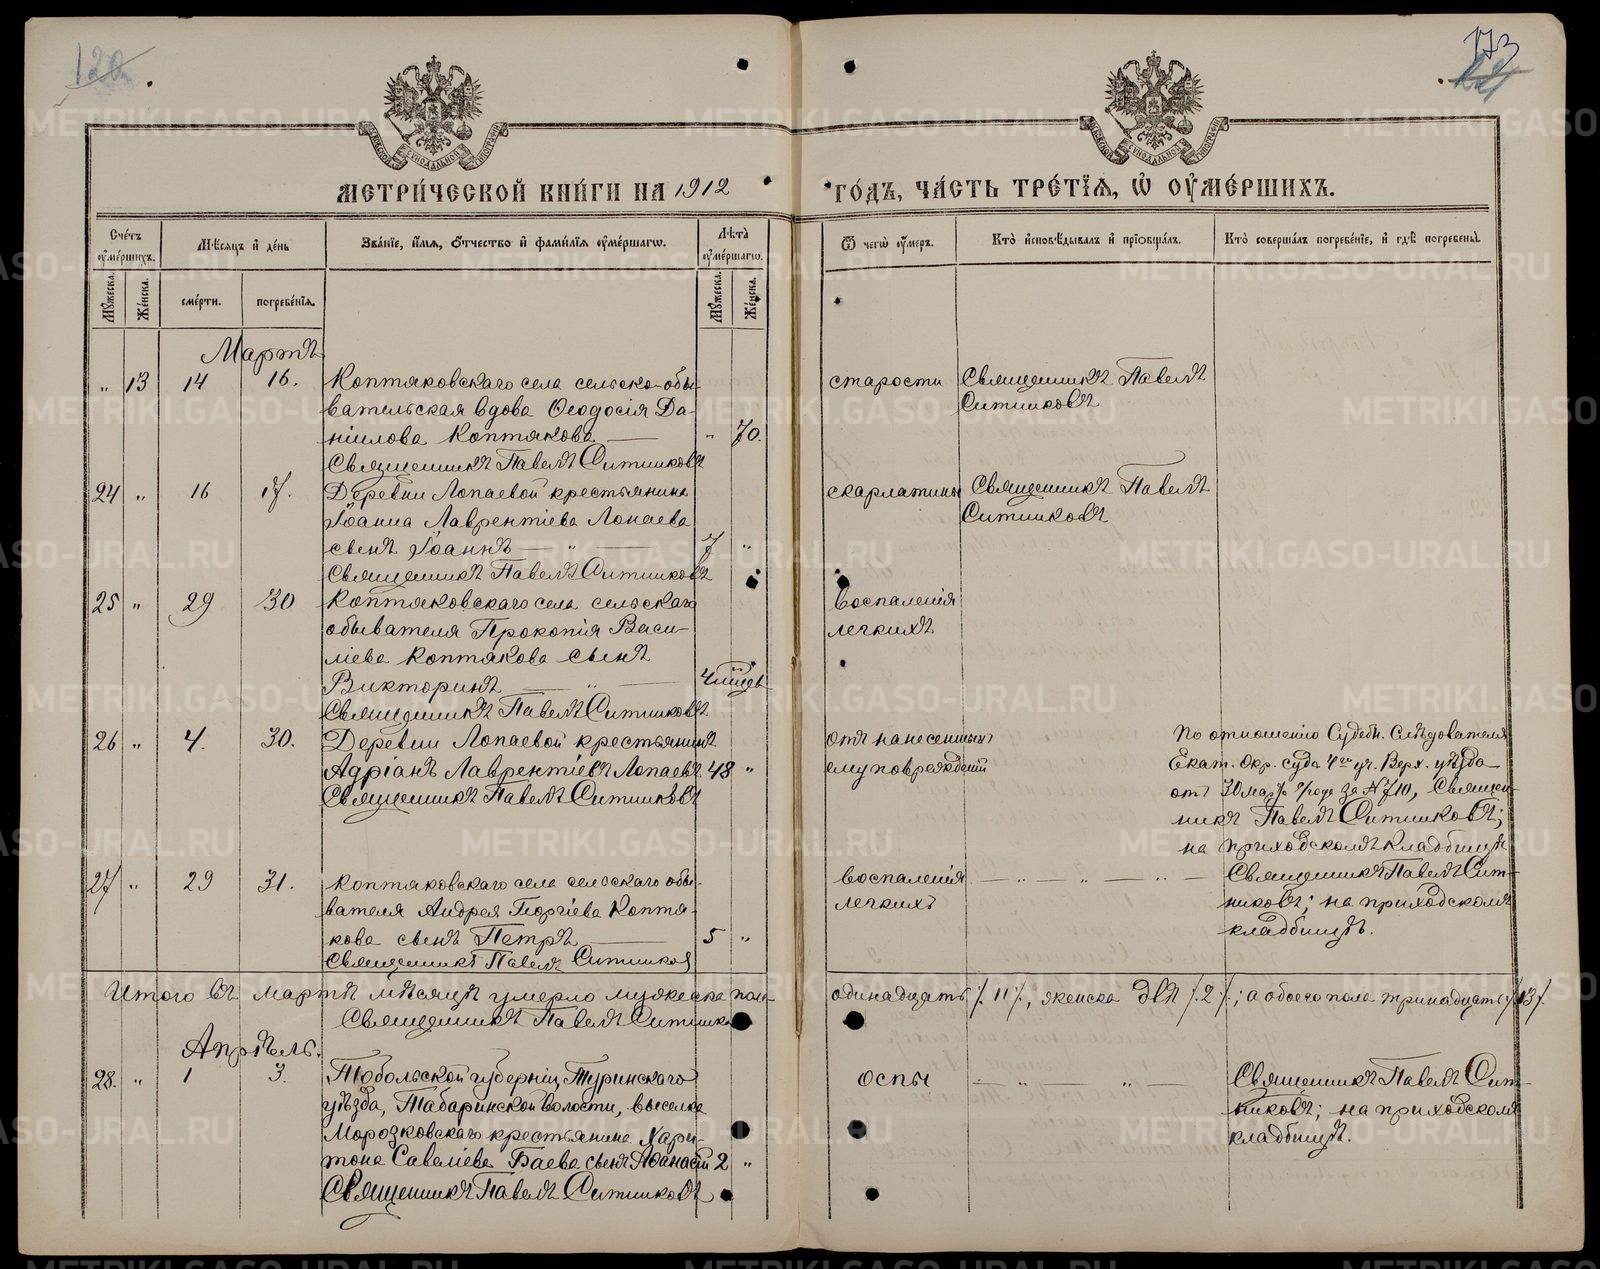 120
173
МЕТРИ́ЧЕСКОЙ КНИ́ГИ НА 1912
ГО́ДЪ, ЧА́СТЬ ТРЕ́ТІѦ, Ѡ҆ ОУ҆МЕ́РШИХЪ.
Сче́тъ оу҆ме́ршихъ.
Мѣ́сяцъ и҆ де́нь
Зва́нїе, и҆́мя, ѻ҆́тчество и҆ фами́лїя оу҆ме́ршагѡ.
Лѣ́та оу҆ме́ршагѡ.
Ѿ чегѡ̀ оу҆́меръ.
Кто̀ и҆сповѣ́дывалъ и҆ прїѻбща́лъ.
Кто̀ соверша́лъ погребе́нїе, и҆ гдѣ̀ погребены̀.
Мꙋ́жеска. Же́нска. сме́рти. погребе́нїя. Мꙋ́жеска. Же́нска.
Мартъ
„ 13 14 16. Коптяковскаго села сельско-обы-
вательская вдова Ѳеодосія Да-
ніилова Коптякова — „ 70.
Священникъ Павелъ Ситниковъ
старости Священникъ Павелъ
Ситниковъ
24 „ 16 17. Деревни Лопаевой крестьянина
Іоанна Лаврентіева Лопаева
сынъ Іоаннъ — „ — 7 „
Священникъ Павелъ Ситниковъ
скарлатины Священникъ Павелъ
Ситниковъ
25 „ 29 30 Коптяковскаго села сельскаго
обывателя Прокопія Васи-
ліева Коптякова сынъ
Викторинъ — „ — 4 мѣс.
Священникъ Павелъ Ситниковъ
воспаленія
легкихъ
26 „ 4. 30. Деревни Лопаевой крестьянинъ
Адріанъ Лаврентіевъ Лопаевъ 48 „
Священникъ Павелъ Ситниковъ
отъ нанесенныхъ
ему поврежденій
По отношенію Судебн. Слѣдователя
Екат. Окр. Суда 4го уч. Верх. уѣзда
отъ 30 мар. с/года за № 710, Священ-
никъ Павелъ Ситниковъ;
на приходскомъ кладбищѣ
27 „ 29 31. Коптяковскаго села сельскаго обы-
вателя Андрея Георгіева Коптя-
кова сынъ Петръ — 5 „
Священникъ Павелъ Ситников
воспаленія — „ — „ — „ —
легкихъ
Священникъ Павелъ Сит-
никовъ; на приходскомъ
кладбищѣ.
Итого въ мартѣ мѣсяцѣ умерло мужеска пола одинадцать /.11/., женска двѣ /.2/.; а обоего пола тринадцать /.13/.
Священникъ Павелъ Ситников
Апрѣль.
28. „ 1 3. Тобольской губерніи, Туринскаго
уѣзда, Табаринской волости, выселка
Морозковскаго крестьянина Хари-
тона Савеліева Баева сынъ Аѳанасій 2 „
Священникъ Павелъ Ситниковъ
оспы — „ — „
Священникъ Павелъ Сит-
никовъ; на приходскомъ
кладбищѣ.
METRIKI.GASO-URAL.RU